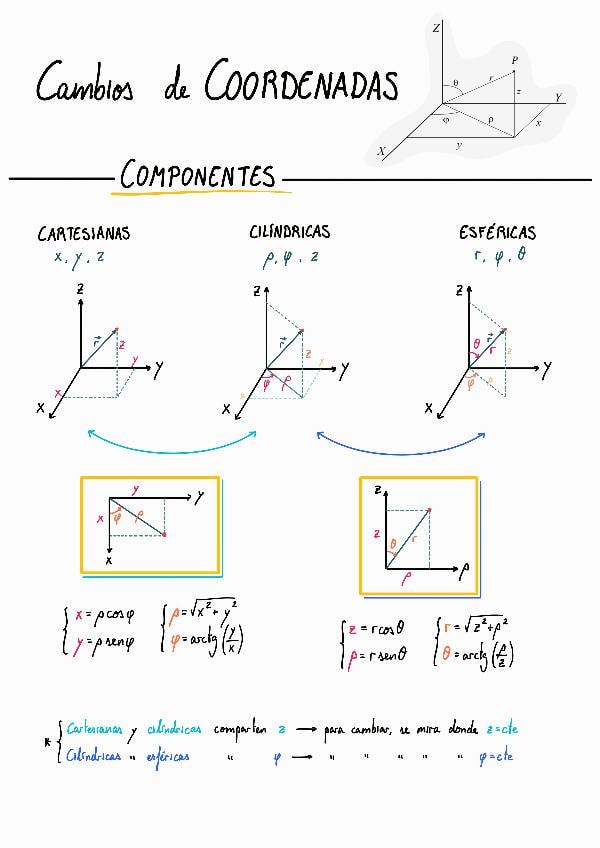 Cambios de COORDENADAS
Z
θ
r
P
z
Y
φ
ρ
x
y
X
COMPONENTES
CARTESIANAS
x, y, z
CILÍNDRICAS
ρ, φ, z
ESFÉRICAS
r, φ, θ
Z
r⃗
z
y
Y
x
X
Z
r⃗
z
y
Y
φ
ρ
x
X
Z
θ
r⃗
r
z
Y
φ
ρ
X
y
Y
x
φ
ρ
X
Z
z
θ
r
ρ
ρ
{ x = ρ cos φ
y = ρ sen φ
{ ρ = √x² + y²
φ = arctg (y/x)
{ z = r cos θ
ρ = r sen θ
{ r = √z² + ρ²
θ = arctg (ρ/z)
* { Cartesianas y cilíndricas comparten z → para cambiar, se mira donde z = cte
Cilíndricas " esféricas " φ → " " " " " φ = cte